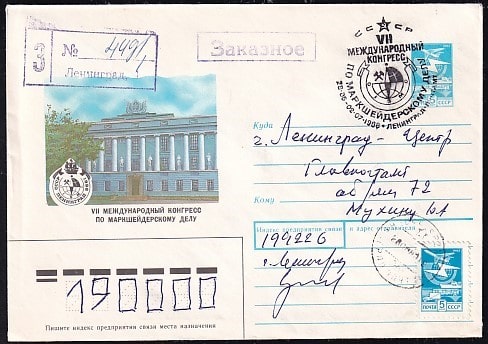 З № 449/1
Ленинград
Заказное
СССР
VII
МЕЖДУНАРОДНЫЙ
КОНГРЕСС
ПО МАРКШЕЙДЕРСКОМУ ДЕЛУ
ЛЕНИНГРАД
ПОЧТА СССР
Куда
г. Ленинград - Центр
Главпочтамт
Кому
аб/ящ 72
Мухину
VII МЕЖДУНАРОДНЫЙ КОНГРЕСС
ПО МАРКШЕЙДЕРСКОМУ ДЕЛУ
Индекс предприятия связи и адрес отправителя
199226
г. Ленинград
190000
5
ПОЧТА СССР
Пишите индекс предприятия связи места назначения